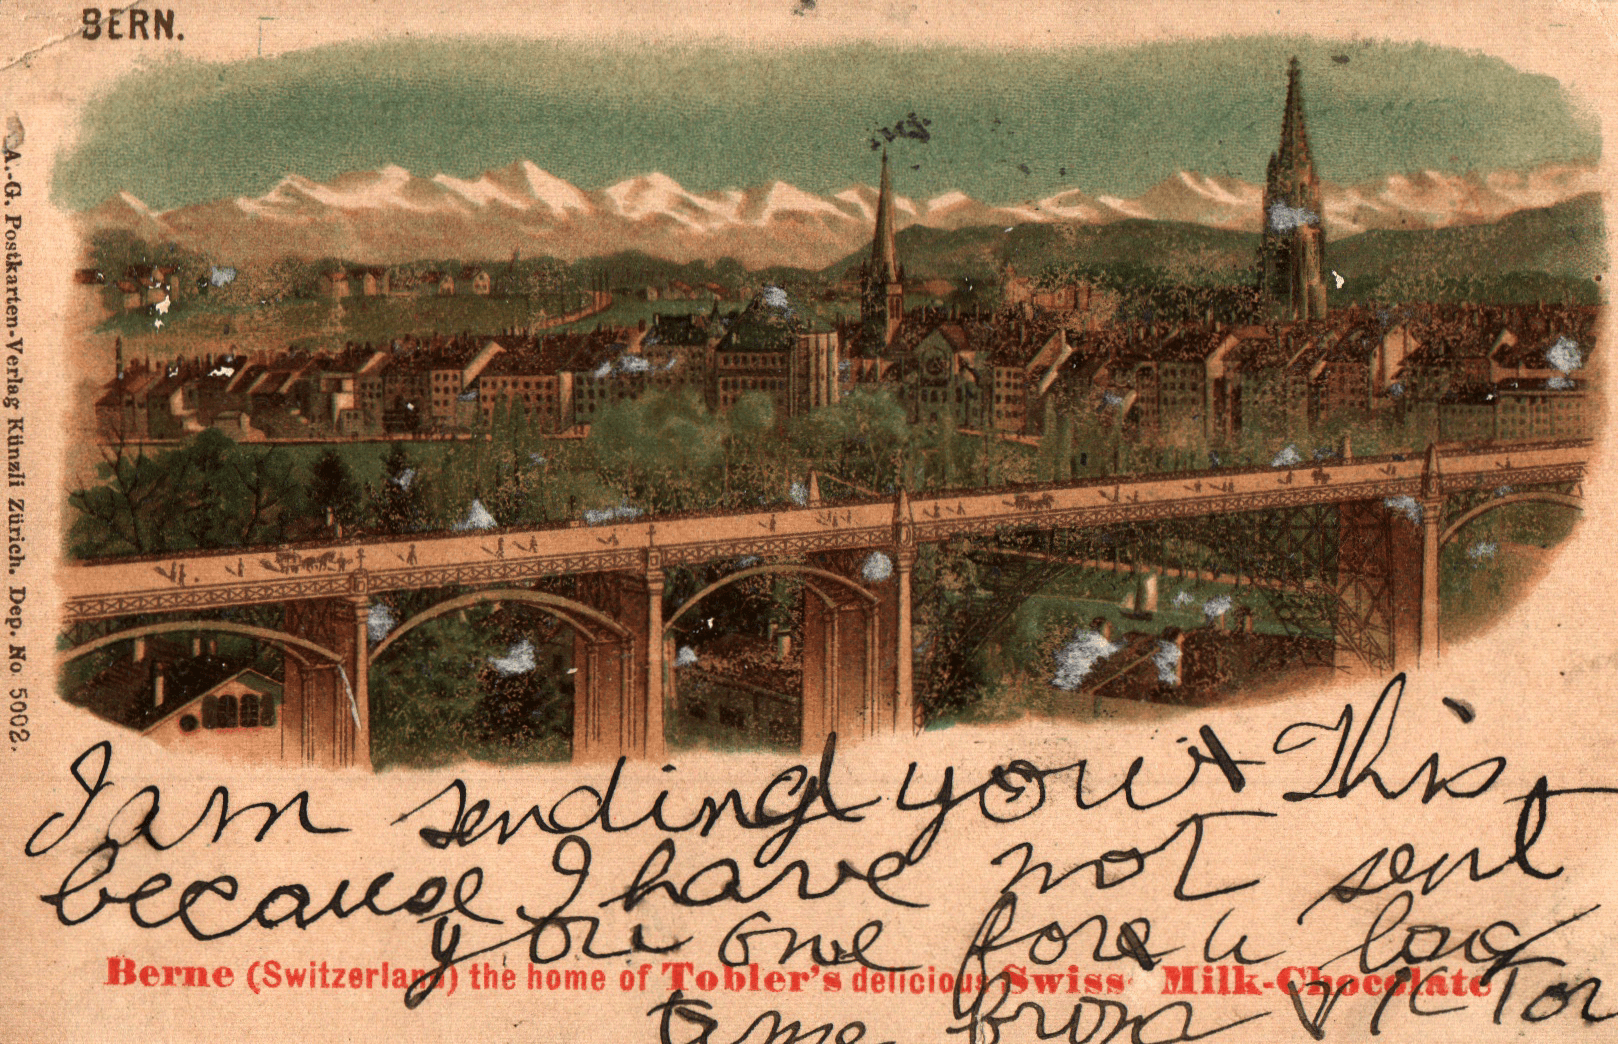 BERN.
A.-G. Postkarten-Verlag Künzli Zürich. Dep. No 5002.
I am sending you This
because I have not sent
you one for a long
Berne (Switzerland) the home of Tobler's delicious Swiss Milk-Chocolate
time from VICTor